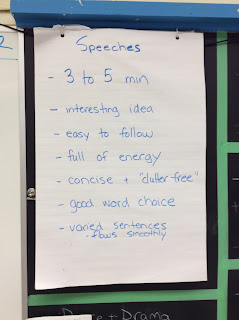 Speeches
- 3 to 5 min
- interesting idea
- easy to follow
- full of energy
- concise + "clutter free"
- good word choice
- varied sentences
- flows smoothly
2
+ Drama